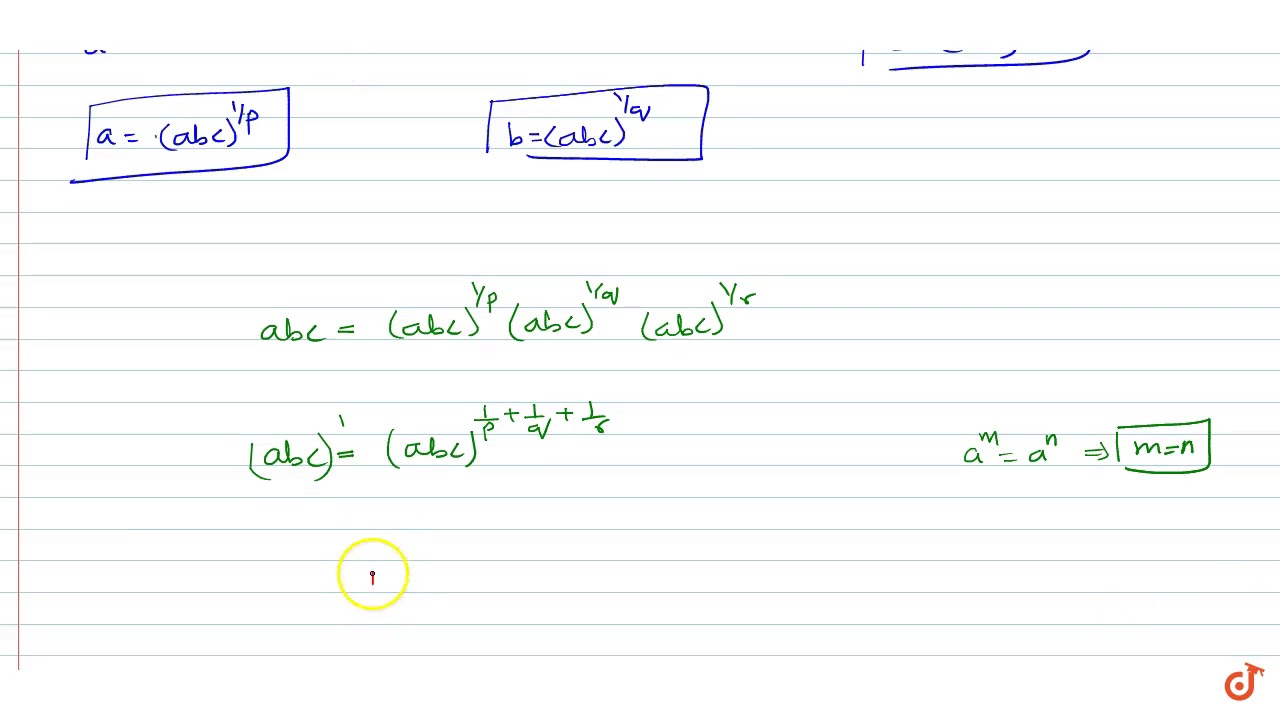 a = (abc)^{1/p} b = (abc)^{1/q}
abc = (abc)^{1/p} (abc)^{1/q} (abc)^{1/r}
(abc)^1 = (abc)^{1/p + 1/q + 1/r} a^m = a^n ⇒ m=n